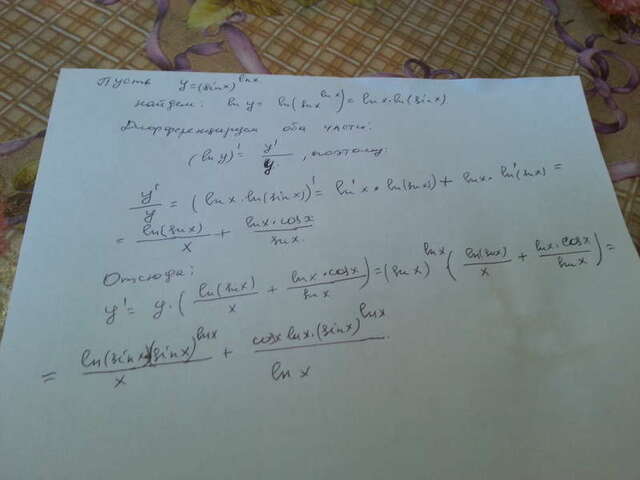 Пусть y=(sinx)^lnx
найдем: ln y = ln(sinx^lnx) = lnx·ln(sinx)
Дифференцируем оба части:
(ln y)' = y'/y, поэтому:
y'/y = (lnx·ln(sinx))' = ln'x·ln(sinx) + lnx·ln'(sinx) =
= ln(sinx)/x + lnx·cosx/sinx.
Отсюда:
y' = y·(ln(sinx)/x + lnx·cosx/sinx) = (sinx)^lnx (ln(sinx)/x + lnx·cosx/sinx) =
= ln(sinx)(sinx)^lnx/x + cosx lnx·(sinx)^lnx/ln x